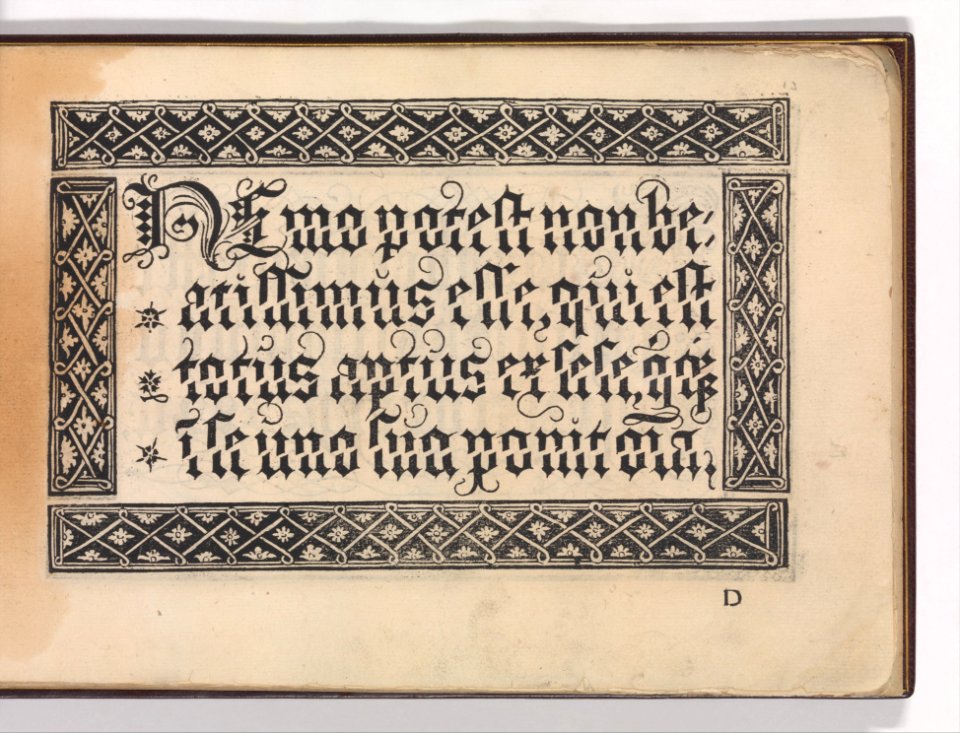 NEmo poteſt non be-
atiſſimus eſſe, qui eſt
totus aptus ex ſeſe, q́qꝫ
ĩ ſe uno ſua ponit oĩa,
D